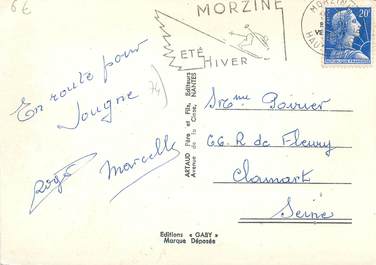 6€
MORZINE
ETÉ
HIVER
MORZINE
HAUTE
20F
REPUBLIQUE FRANÇAISE
En route pour
Jougne
74
Roger Marcelle
ARTAUD Père et Fils, Editeurs
Avenue de la Close, NANTES
Mme Poirier
66 R de Fleury
Clamart
Seine
Editions « GABY »
Marque Déposée